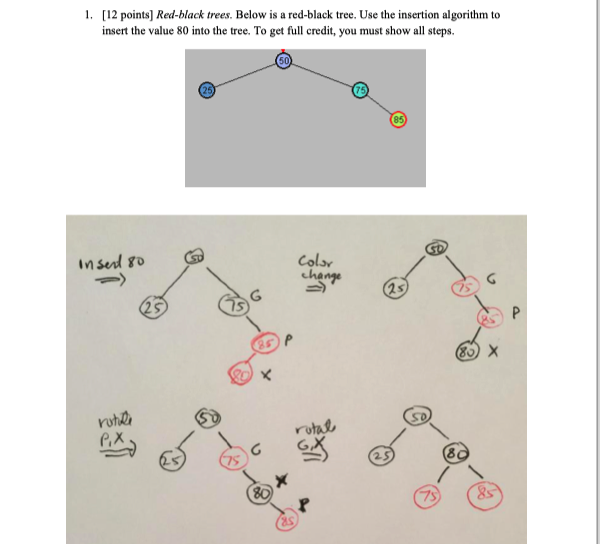 1. [12 points] Red-black trees. Below is a red-black tree. Use the insertion algorithm to
insert the value 80 into the tree. To get full credit, you must show all steps.
50
25 75
85
Insert 80
50
25 75 G
85 P
80 X
Color
change
50
25 75 G
85 P
80 X
rotate
P,X
50
25 75 G
80 X
85 P
rotate
G,X
50
25 80
75 85